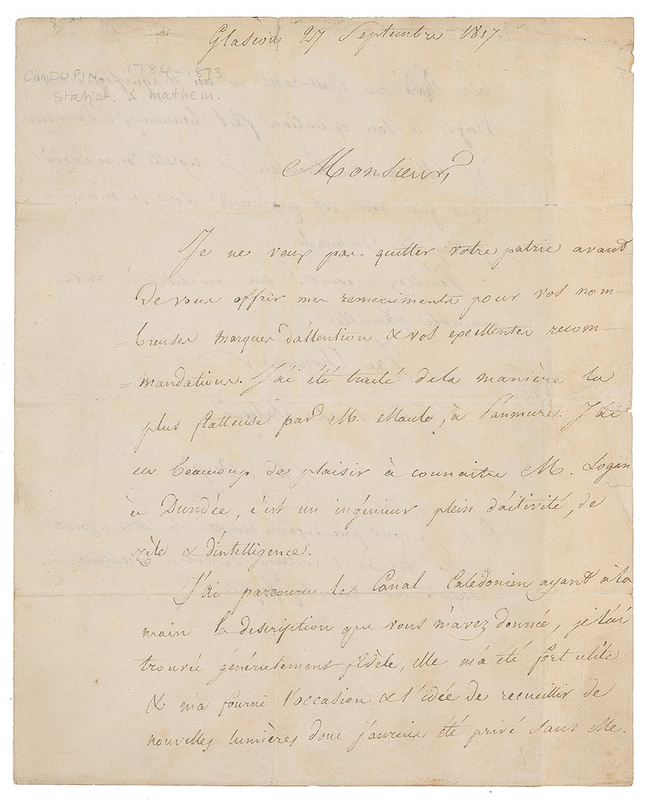 Glascow 27 Septembre 1817.
Ch. DUPIN 1784-1873
statist. & mathem.
Monsieur,
Je ne veux pas quitter votre patrie avant
de vous offrir mes remerciments pour vos nom-
=breuses marques d'attention & vos excellentes recom-
=mandations. J'ai été traité de la manière la
plus flatteuse par M. Maule, à Panmure. J'ai
eu beaucoup de plaisir à connaitre M. Logan
à Dundée, c'est un ingénieur plein d'activité, de
zèle & d'intelligence.
J'ai parcouru le Canal Calédonien ayant à la
main la description que vous m'avez donnée, je l'ai
trouvée généralement fidèle, elle m'a été fort utile
& m'a fourni l'occasion & l'idée de recueillir de
nouvelles lumières dont j'aurais été privé sans elle.